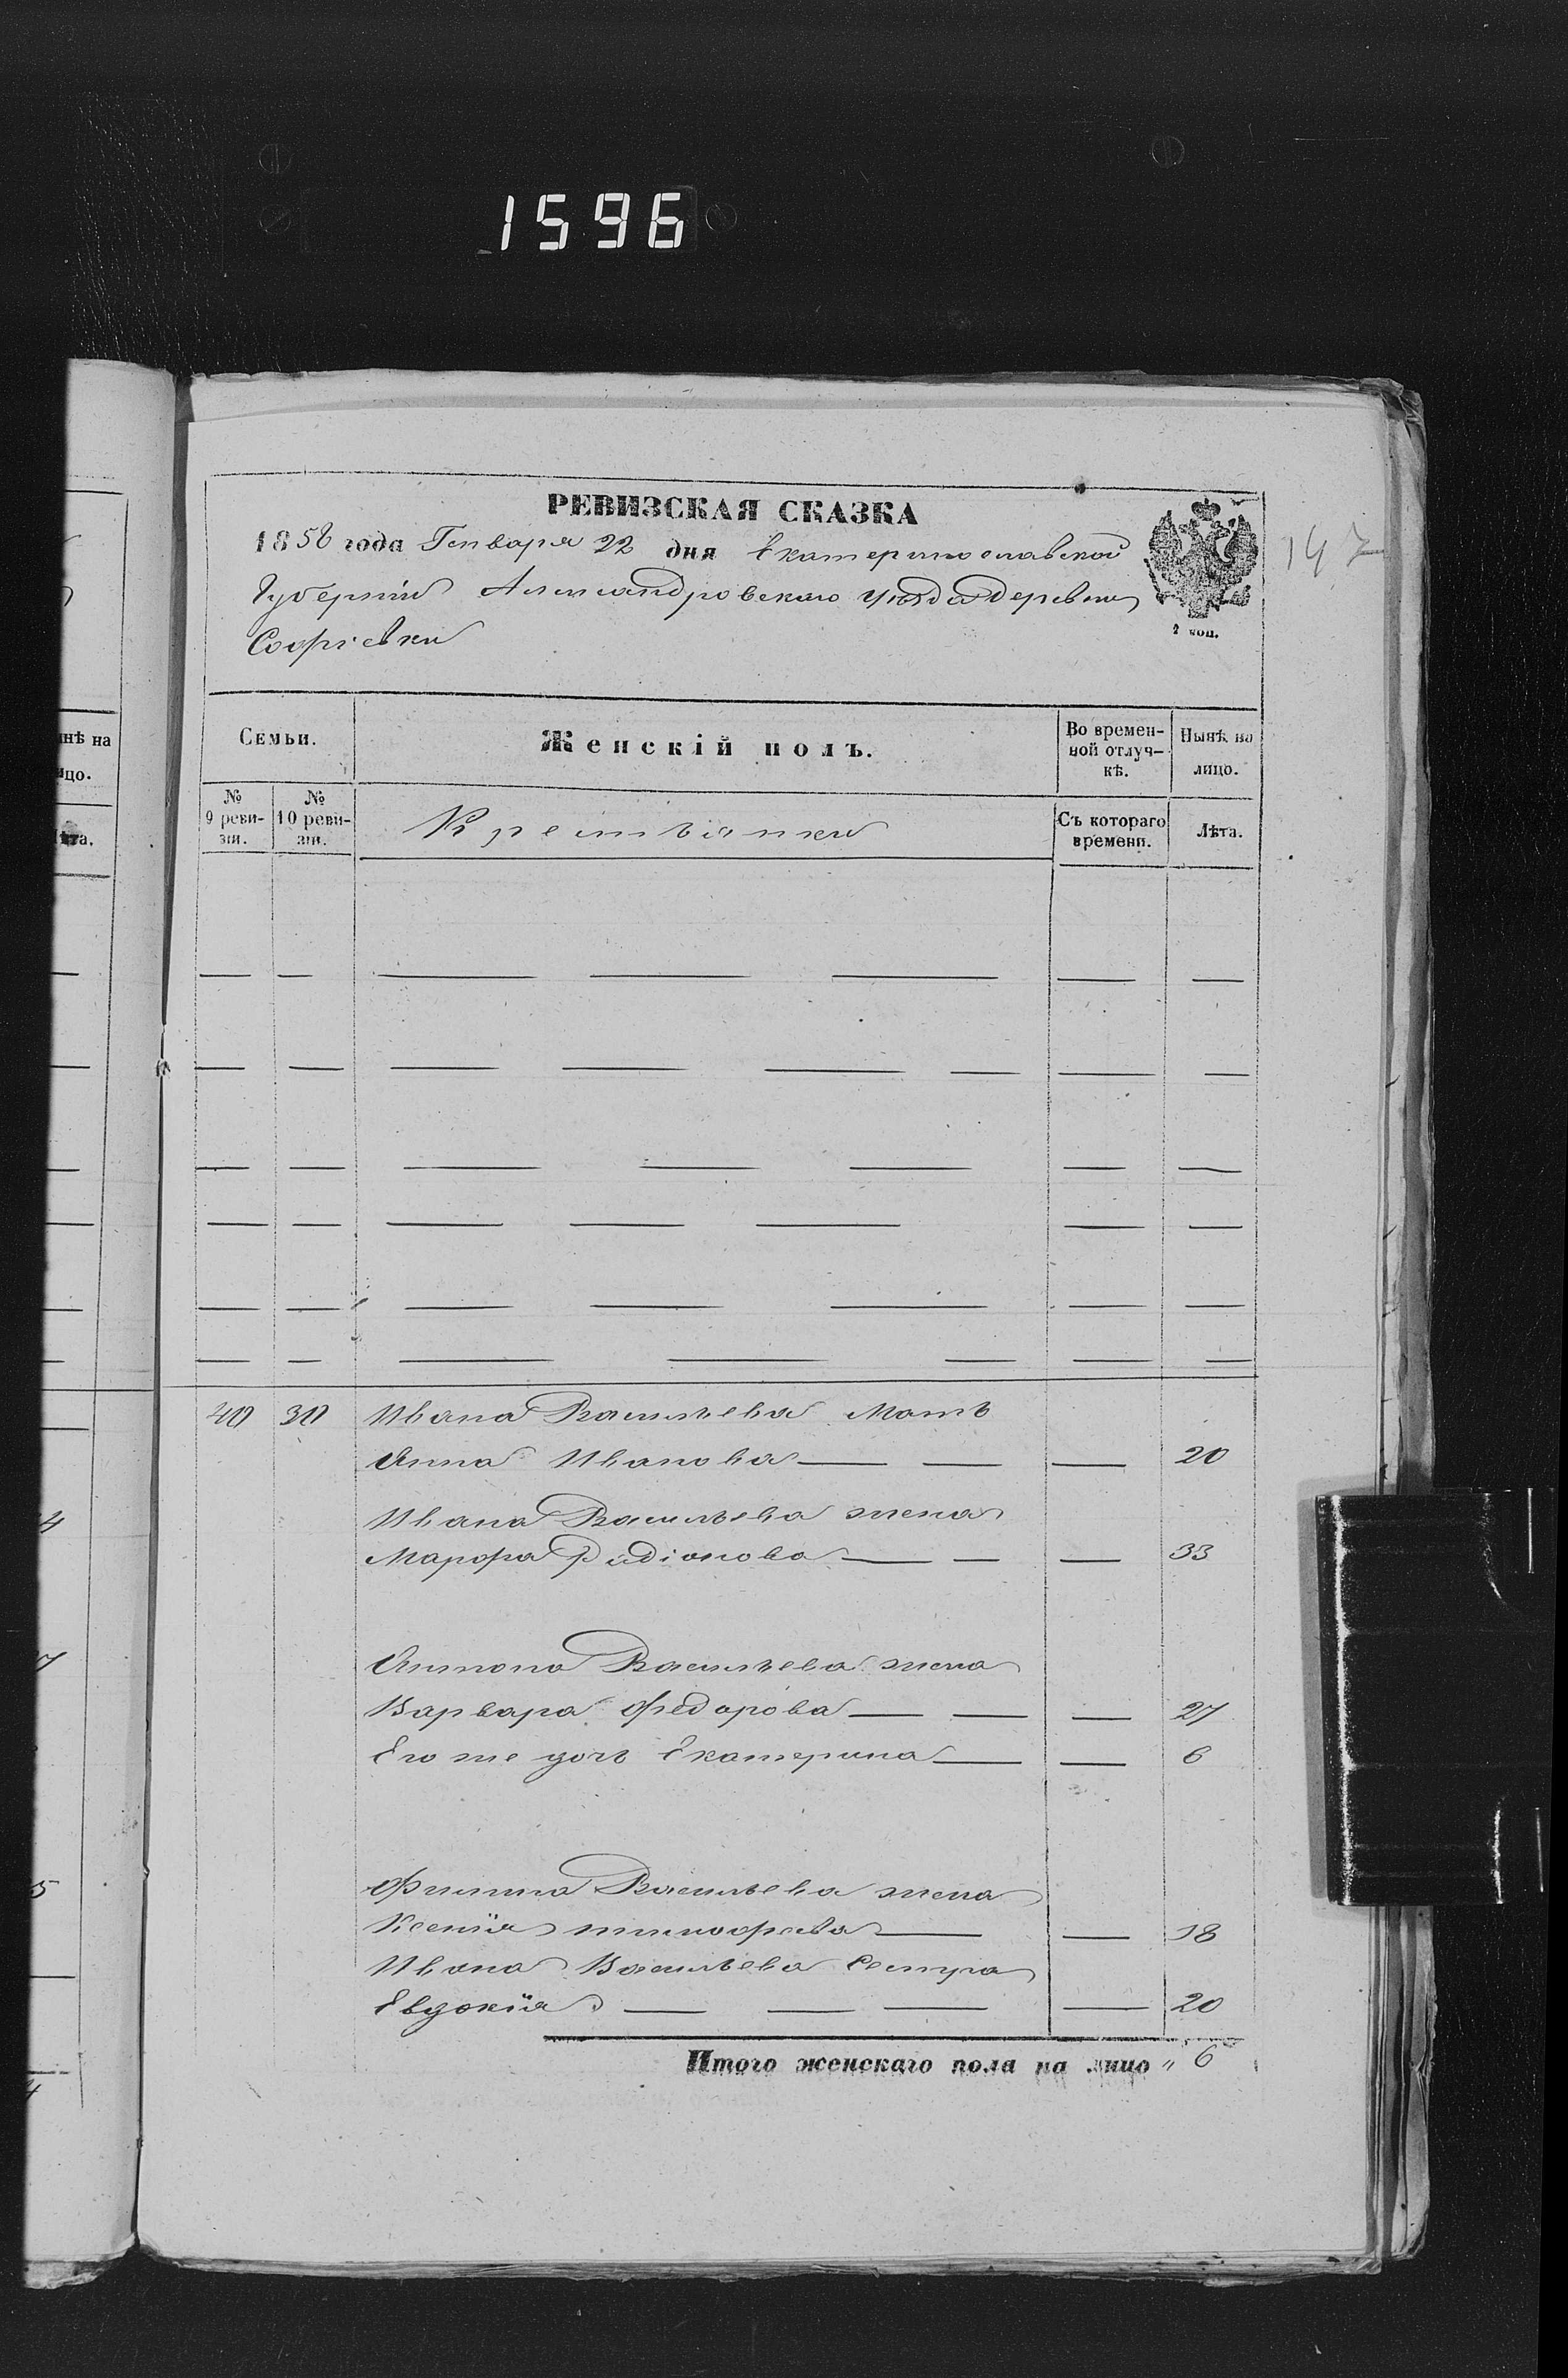 1596
РЕВИЗСКАЯ СКАЗКА
1858 года Генваря 22 дня Екатеринославской
Губерніи Александровскаго уѣзда деревни
Софіевки
147
2 коп.
Семьи.
Женскій полъ.
Во времен-
ной отлуч-
кѣ.
Нынѣ на
лицо.
№
9 реви-
зіи.
№
10 реви-
зіи.
Крестьянки
Съ котораго
времени.
Лѣта.
40 30 Ивана Васильева Мать
Анна Иванова — — — 20
Ивана Васильева жена
Марфа Радіонова — — — 33
Антона Васильева жена
Варвара Федорова — — — 27
Его же дочь Екатерина — — 6
Филипа Васильева жена
Ксенія тимофеева — — 18
Ивана Васильева Сестра
Евдокія — — — — 20
Итого женскаго пола на лицо " 6